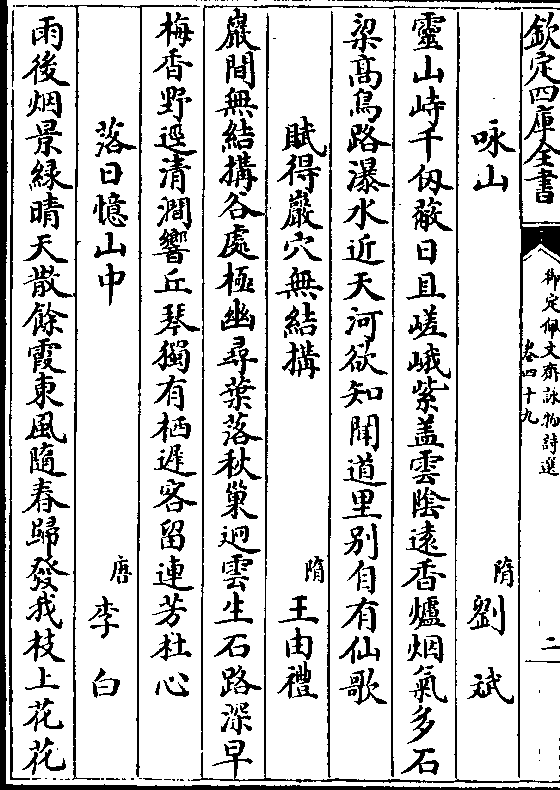 欽定四庫全書
御定佩文齋詠物詩選
卷四十九
二
咏山
隋
劉斌
靈山峙千仭蔽日且嵯峨紫盖雲陰遠香爐烟氣多石
梁高鳥路瀑水近天河欲知聞道里别自有仙歌
賦得巖穴無結搆
隋
王由禮
巖間無結搆谷處極幽尋葉落秋巢迥雲生石路深早
梅香野逕清澗響丘琴獨有栖遲客留連芳杜心
落日憶山中
唐
李白
雨後烟景緑晴天散餘霞東風隨春歸發我枝上花花